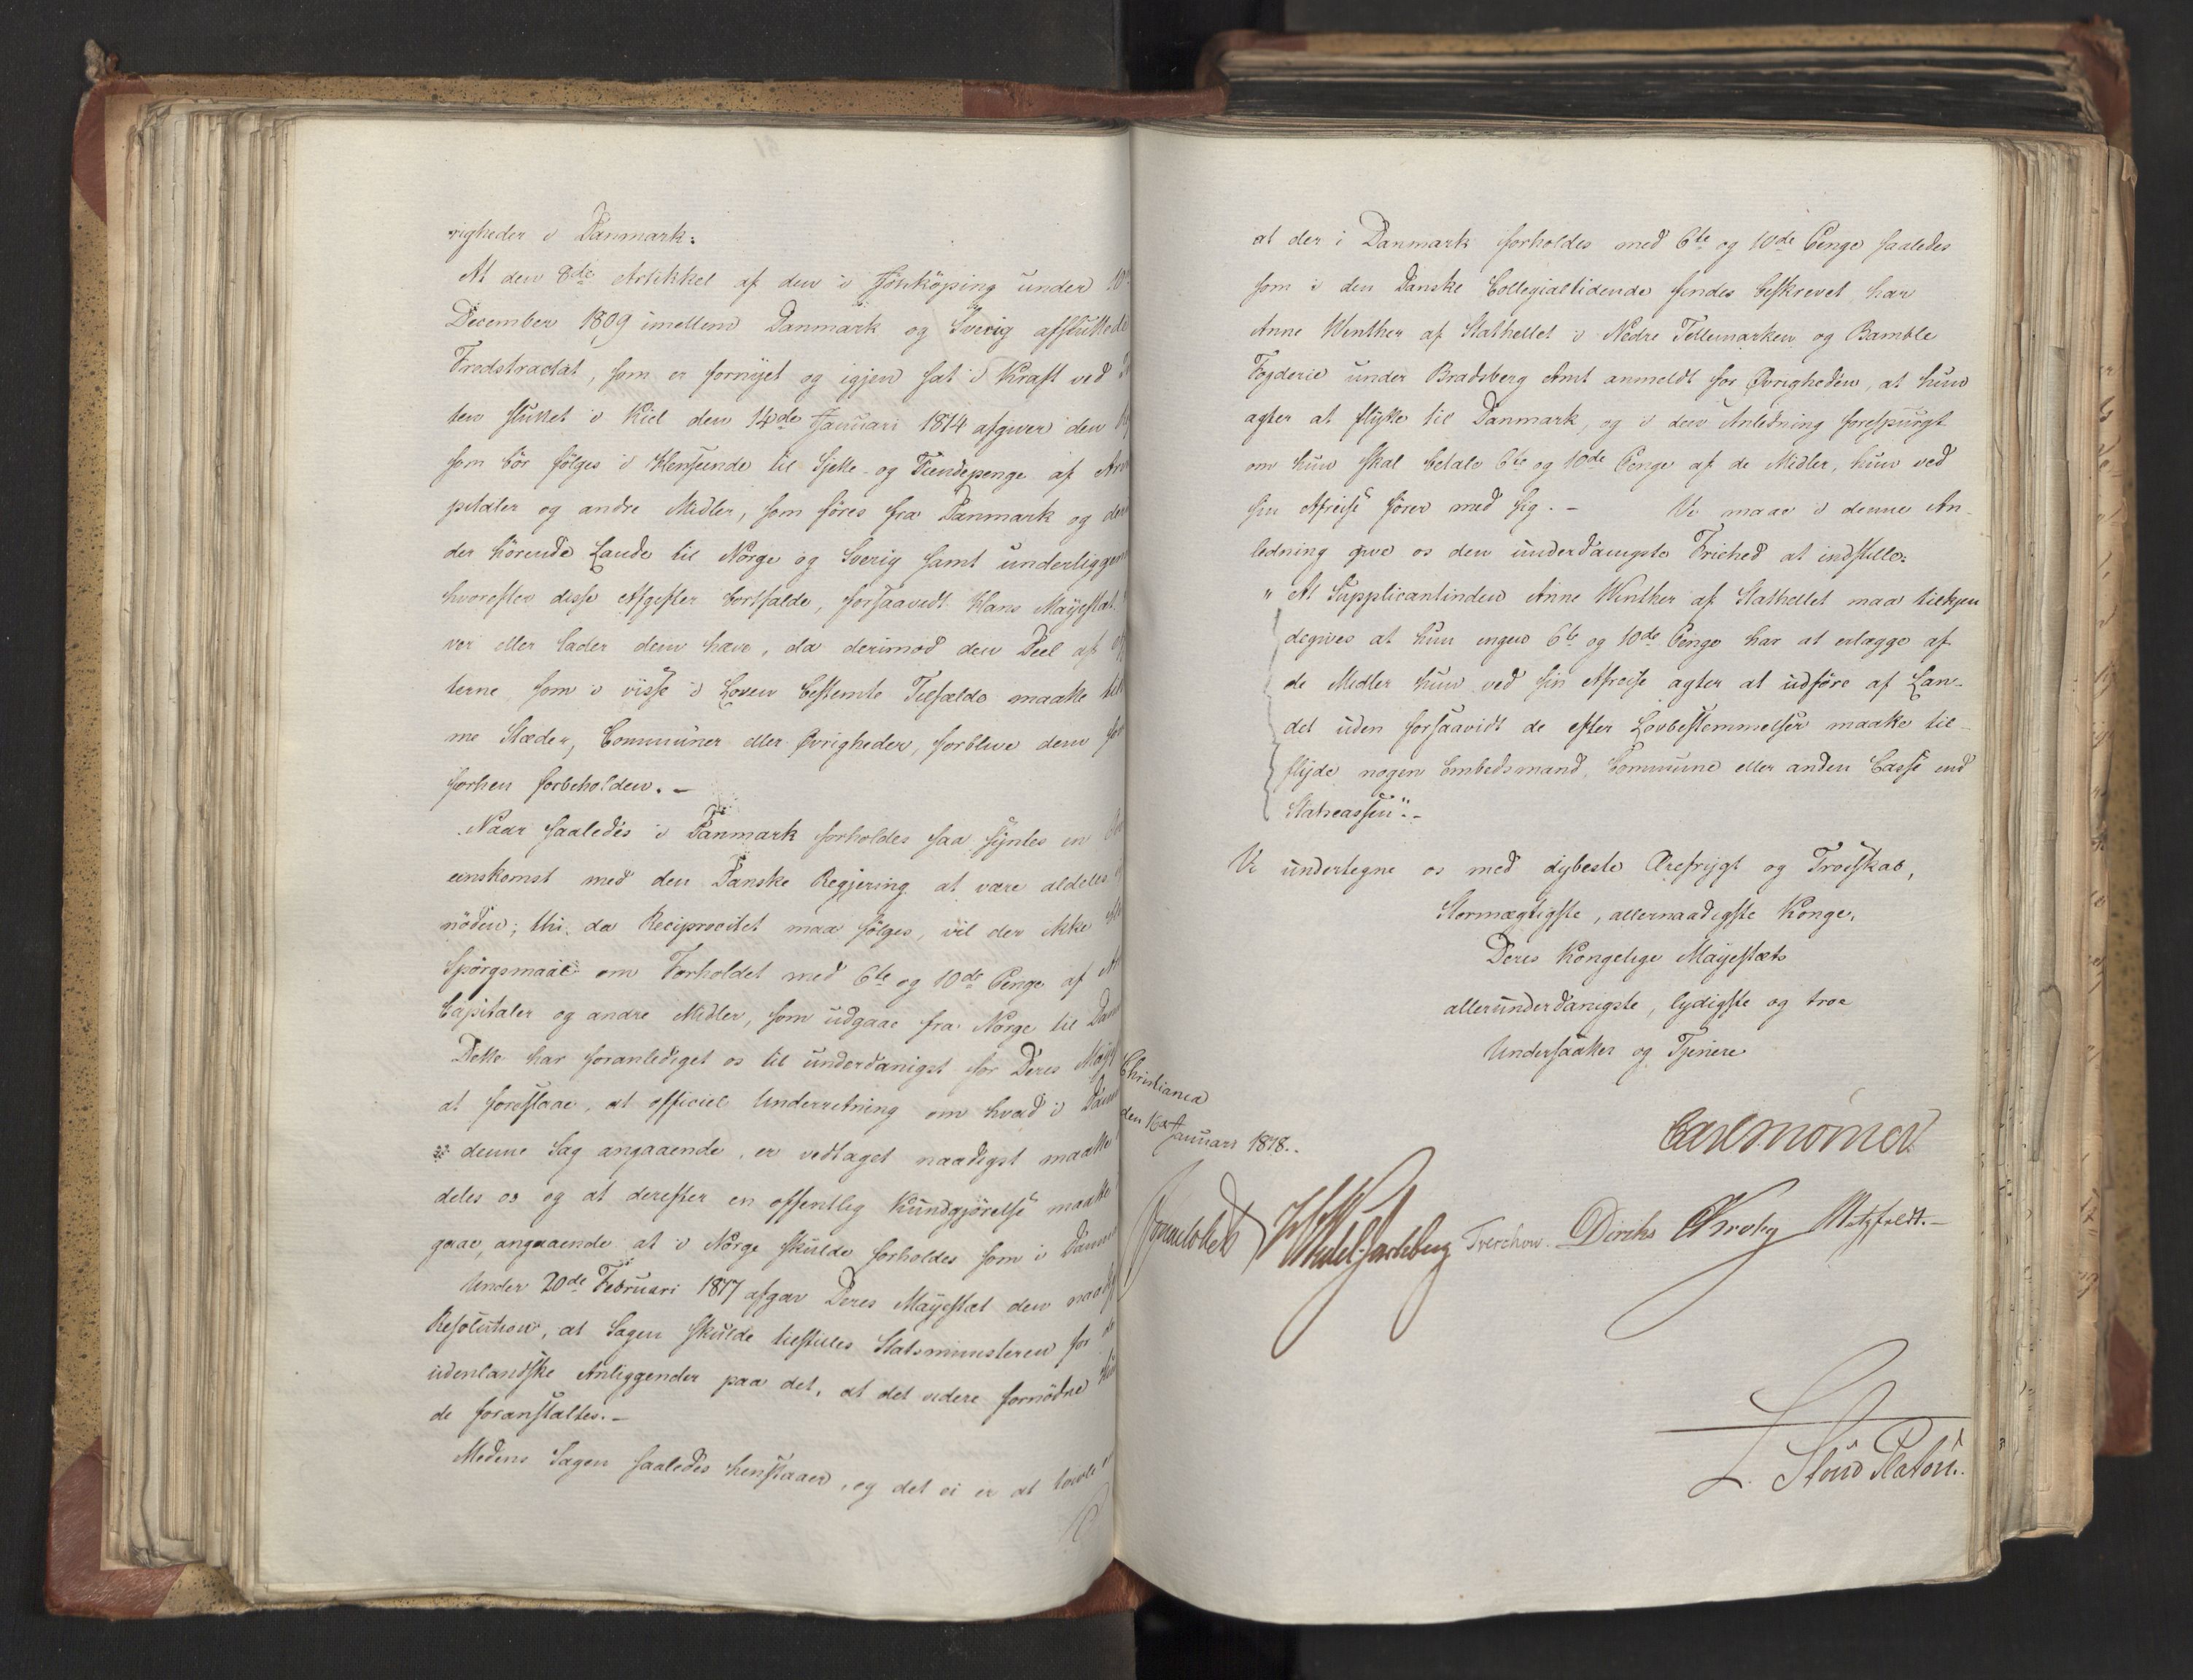 righeder i Danmark:
At den 8de Artikkel af den i Jönköping under 10
December 1809 imellem Danmark og Sverig afsluttede
Fredstractat, som er fornyet og igjen sat i Kraft ved
ten sluttet i Kiel den 14de Januari 1814 afgiver den
som bör fölges i Henseende til Sjette- og Tiendepenge af Arv
pitaler og andre Midler, som föres fra Danmark og der
der hörende Lande til Norge og Sverig samt underliggen
hvorefter disse Afgifter bortfalde, forsaavidt Hans Mayestæt
ver eller lader dem hæve, da derimod den Deel af
terne, som i visse i Loven bestemte Tilfælde maatte til
me Stæder, Communer eller Øvrigheder, forblive dem
forhen forbeholden. -
Naar saaledes i Danmark forholdes saa syntes en
eenskomst med den Danske Regjering at være aldeles
nöden; thi, da Reciprocitet maa fölges, vil der ikke
Spörgsmaal om Forholdet med 6te og 10de Penge af
Capitaler og andre Midler, som udgaae fra Norge til Dan
Dette har foranlediget os til underdanigst for Deres Mayest
at foreslaae, at officiel Underretning om hvad i Danm
denne Sag angaaende, er vedtaget naadigst maatte
deles os og at derefter en offentlig Kundgjörelse maatte
gaae, angaaende at i Norge skulde forholdes som i Danm
Under 20de Februari 1817 afgav Deres Mayestæt den naad
Resolution, at Sagen skulde tilstilles Statsministeren for de
udenlandske Anliggender paa det, at det videre fornödne
de foranstaltes. -
Medens Sagen saaledes henstaaer, og det ei er at tvivle
at der i Danmark forholdes med 6te og 10de Penge saaledes
som i den Danske Collegialtidende findes beskrevet, har
Anne Winther af Stathellet i Nedre Tellemarken og Bamble
Fogderie under Bradsberg Amt anmeldt for Øvrigheden, at hun
agter at flytte til Danmark, og i den Anledning forespurgt
om hun skal betale 6te og 10de Penge af de Midler, hun ved
sin Afreise förer med sig. - Vi maae i denne An-
ledning give os den underdanigste Friehed at indstille:
" At Supplicantinden Anne Winther af Stathellet maa tilkjen
degives at hun ingen 6te og 10de Penge har at erlægge af
de Midler hun ved sin Afreise agter at udföre af Lan-
det uden forsaavidt de efter Lovbestemmelser maatte til-
flyde nogen Embedsmand, Commune eller anden Casse end
Statscassen". -
Vi undertegne os med dybeste Ærefrygt og Troeskab,
Stormægtigste, allernaadigste Konge,
Deres Kongelige Mayestæts
allerunderdanigste, lydigste og troe
Undersaatter og Tjenere
Christiania
den 16de Januari 1818.
Carl Mörner
Sommelhielm Wedel Jarlsberg Treschow. Diriks Krohg Motzfeldt. -
L. Stoud Platou.